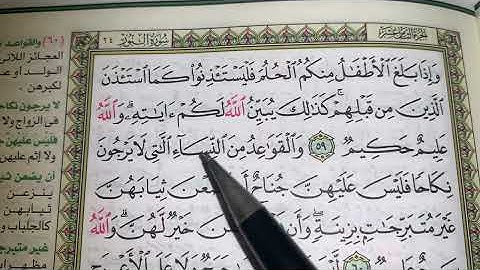 سُورَةُ النُّورِ ٢٤
وَإِذَا بَلَغَ ٱلْأَطْفَٰلُ مِنكُمُ ٱلْحُلُمَ فَلْيَسْتَـْٔذِنُوا۟ كَمَا ٱسْتَـْٔذَنَ
ٱلَّذِينَ مِن قَبْلِهِمْ ۚ كَذَٰلِكَ يُبَيِّنُ ٱللَّهُ لَكُمْ ءَايَٰتِهِۦ ۗ وَٱللَّهُ
عَلِيمٌ حَكِيمٌ ٥٩ وَٱلْقَوَٰعِدُ مِنَ ٱلنِّسَآءِ ٱلَّٰتِى لَا يَرْجُونَ
نِكَاحًا فَلَيْسَ عَلَيْهِنَّ جُنَاحٌ ثِيَابَهُنَّ
غَيْرَ مُتَبَرِّجَٰتٍۭ بِزِينَةٍ ۖ وَأَن خَيْرٌ لَّهُنَّ ۗ وَٱللَّهُ
حَرَجٌ وَلَا عَلَى ٱلْأَعْرَجِ
(٦٠) والقواعد
العجائز اللاتي
الولد أو
لكبرهن
لا يرجون
في الزواج ولا
فليس عليهن
ولا إثم عليهن
أن يضعن
ينزعن
ثيابهن
كالجلباب
غير